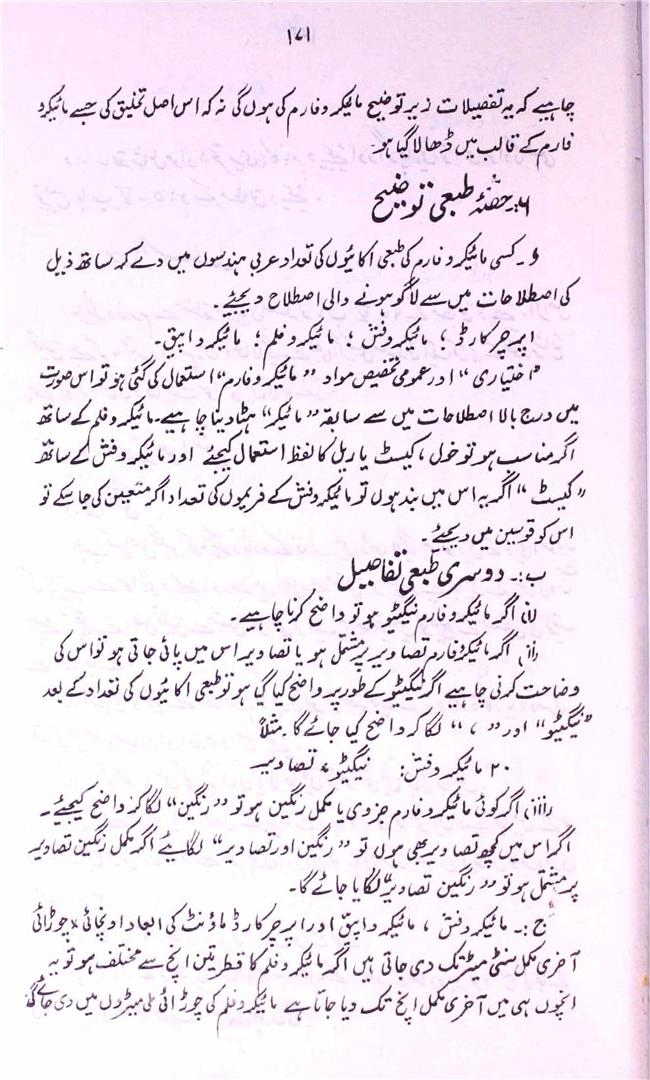 ۱۷۱
چاہیے کہ یہ تفصیلات زیر توضیح مائیکروفارم کی ہوں گی نہ کہ اس اصل تخلیق کی جسے مائیکرو
فارم کے قالب میں ڈھالا گیا ہو۔
۶۔ حصّۂ طبعی توضیح
و۔ کسی مائیکروفارم کی طبعی اکائیوں کی تعداد عربی ہندسوں میں دے کر ساتھ ذیل
کی اصطلاحات میں سے لاگو ہونے والی اصطلاح دیجئے۔
اپرچر کارڈ ؛ مائیکروفش ؛ مائیکروفلم ؛ مائیکرواپیق۔
"اختیاری" اور عمومی تخصیص مواد "مائیکروفارم" استعمال کی گئی ہو تو اس صورت
میں درج بالا اصطلاحات میں سے سابقہ "مائیکر" ہٹا دینا چاہیے۔ مائیکروفلم کے ساتھ
اگر مناسب ہو تو خول ، کیسٹ یا ریل کا لفظ استعمال کیجئے اور مائیکروفش کے ساتھ
"کیسٹ" اگر یہ اس میں بند ہوں تو مائیکروفش کے فریموں کی تعداد اگر متعین کی جا سکے تو
اس کو قوسین میں دیجئے۔
ب:۔ دوسری طبعی تفاصیل
(i) اگر مائیکروفارم نیگیٹو ہو تو واضح کرنا چاہیے۔
(ii) اگر مائیکروفارم تصاویر پر مشتمل ہو یا تصاویر اس میں پائی جاتی ہو تو اس کی
وضاحت کرنی چاہیے اگر نیگیٹو کے طور پر واضح کیا گیا ہو تو طبعی اکائیوں کی تعداد کے بعد
"نیگیٹو" اور " ، " لگا کر واضح کیا جائے گا۔ مثلاً
۲۰ مائیکروفش: نیگیٹو ، تصاویر
(iii) اگر کوئی مائیکروفارم جزوی یا مکمل رنگین ہو تو "رنگین" لگا کر واضح کیجئے۔
اگر اس میں کچھ تصاویر بھی ہوں تو "رنگین اور تصاویر" لگائیے اگر مکمل رنگین تصاویر
پر مشتمل ہو تو "رنگین تصاویر" لگایا جائے گا۔
ج:۔ مائیکروفش ، مائیکرواپیق اور اپرچر کارڈ ماؤنٹ کی ابعاد اونچائی × چوڑائی
آخری مکمل سنٹی میٹر تک دی جاتی ہیں اگر مائیکروفلم کا قطر تین انچ سے مختلف ہو تو یہ
انچوں ہی میں آخری مکمل انچ تک دیا جاتا ہے مائیکروفلم کی چوڑائی ملی میٹروں میں دی جائے گی